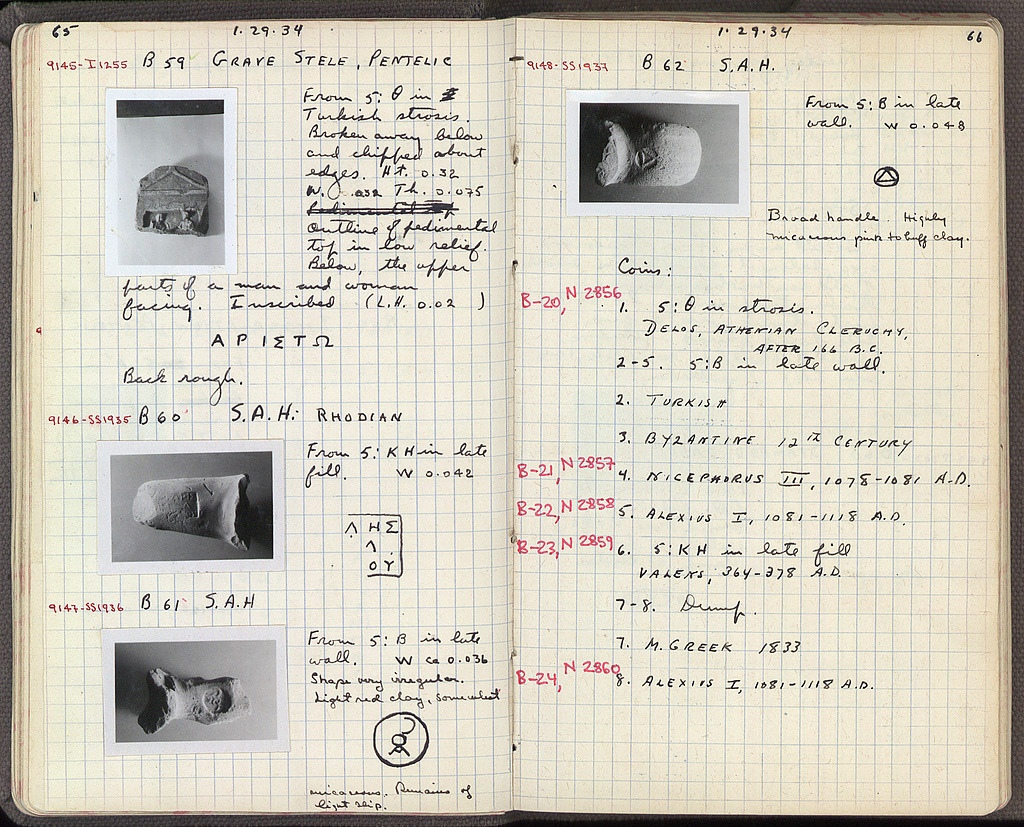 65
1·29·34
9145-I1255 B 59 GRAVE STELE, PENTELIC
From 5: Θ in
Turkish strosis.
Broken away below
and chipped about
edges. Ht. 0.32
W. 0.032 Th. 0.075
Pedimental top
outline of pedimental
top in low relief.
Below, the upper
parts of a man and woman
facing. Inscribed (L.H. 0.02 )
ΑΡΙΣΤΩ
Back rough.
9146-SS1935 B 60 S.A.H: RHODIAN
From 5: KH in late
fill. W 0.042
Λ Η Σ
Λ
Ο Υ
9147-SS1936 B 61 S.A.H
From 5: B in late
wall. W ca 0.036
Shape very irregular.
Light red clay, somewhat
micaceous. Remains of
light slip.
66
1·29·34
9148-SS1937 B 62 S.A.H.
From 5: B in late
wall. W 0.048
Broad handle. Highly
micaceous pink to buff clay.
Coins:
B-20, N 2856
1. 5: Θ in strosis.
DELOS, ATHENIAN CLERUCHY,
AFTER 166 B.C.
2-5. 5:B in late wall.
2. TURKISH
3. BYZANTINE 12th CENTURY
B-21, N 2857
4. NICEPHORUS III, 1078-1081 A.D.
B-22, N 2858
5. ALEXIUS I, 1081-1118 A.D.
B-23, N 2859
6. 5:KH in late fill
VALENS, 364-378 A.D.
7-8. Dump.
7. M. GREEK 1833
B-24, N 2860
8. ALEXIUS I, 1081-1118 A.D.